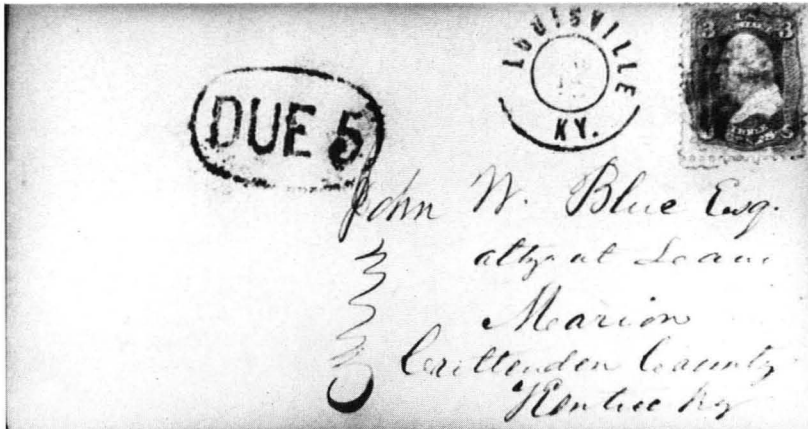 LOUISVILLE
KY.
3 3
DUE 5
John W. Blue Esq.
atty at Law
Marion
Crittenden County
Kentucky